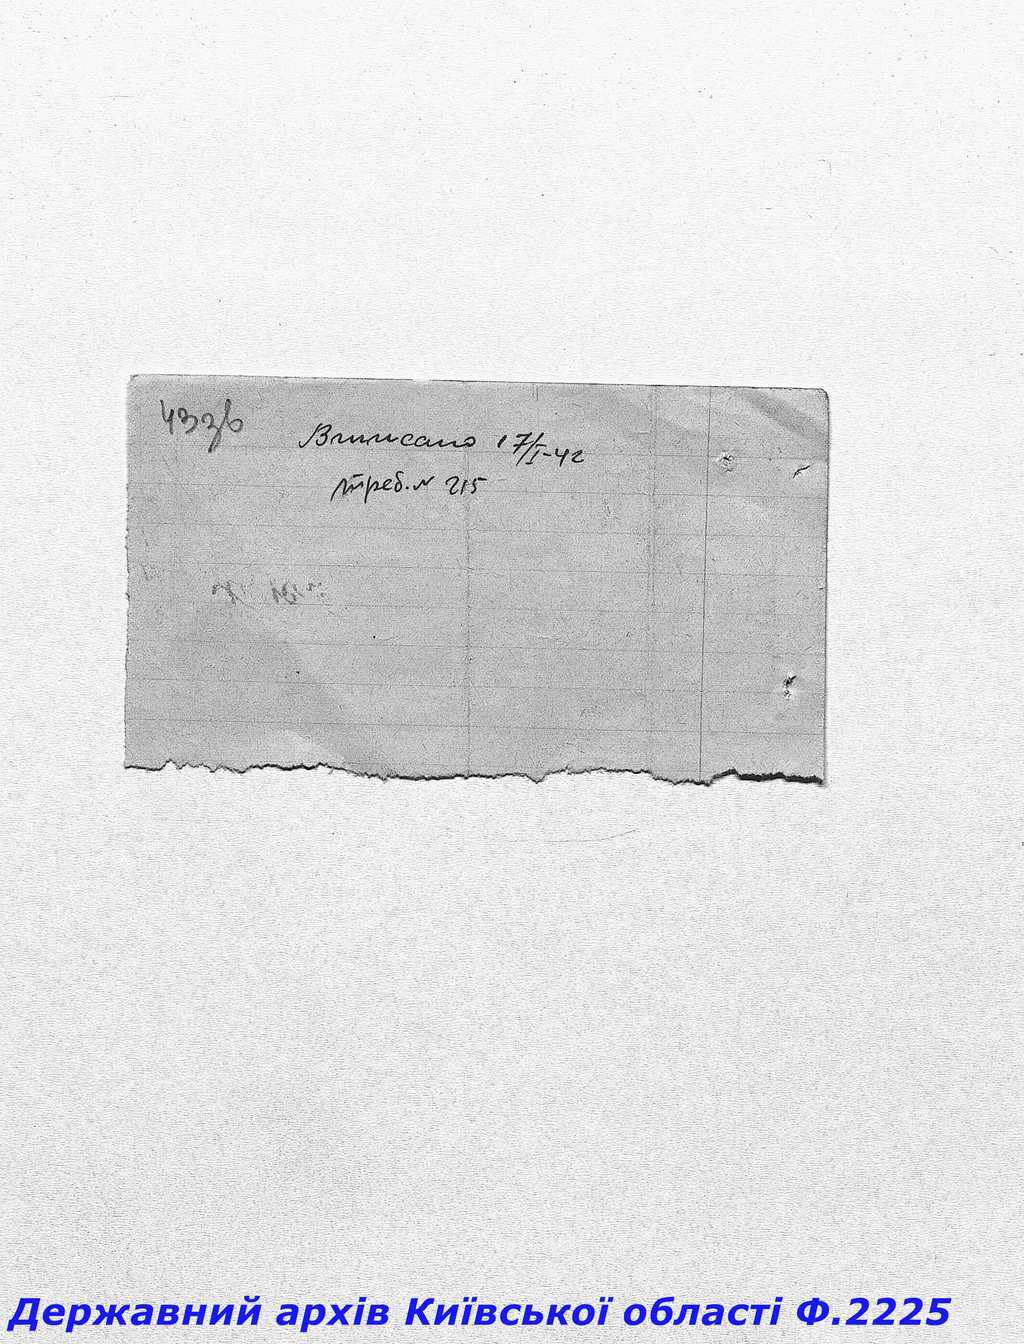 Виписано 17/I-42
треб. N 215
Державний архів Київської області Ф.2225